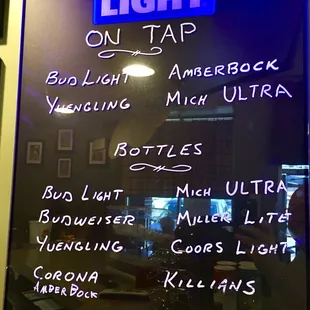 LIGHT
ON TAP
BUD LIGHT AMBERBOCK
YUENGLING MICH ULTRA
BOTTLES
BUD LIGHT MICH ULTRA
BUDWEISER MILLER LITE
YUENGLING COORS LIGHT
CORONA KILLIANS
AMBER BOCK